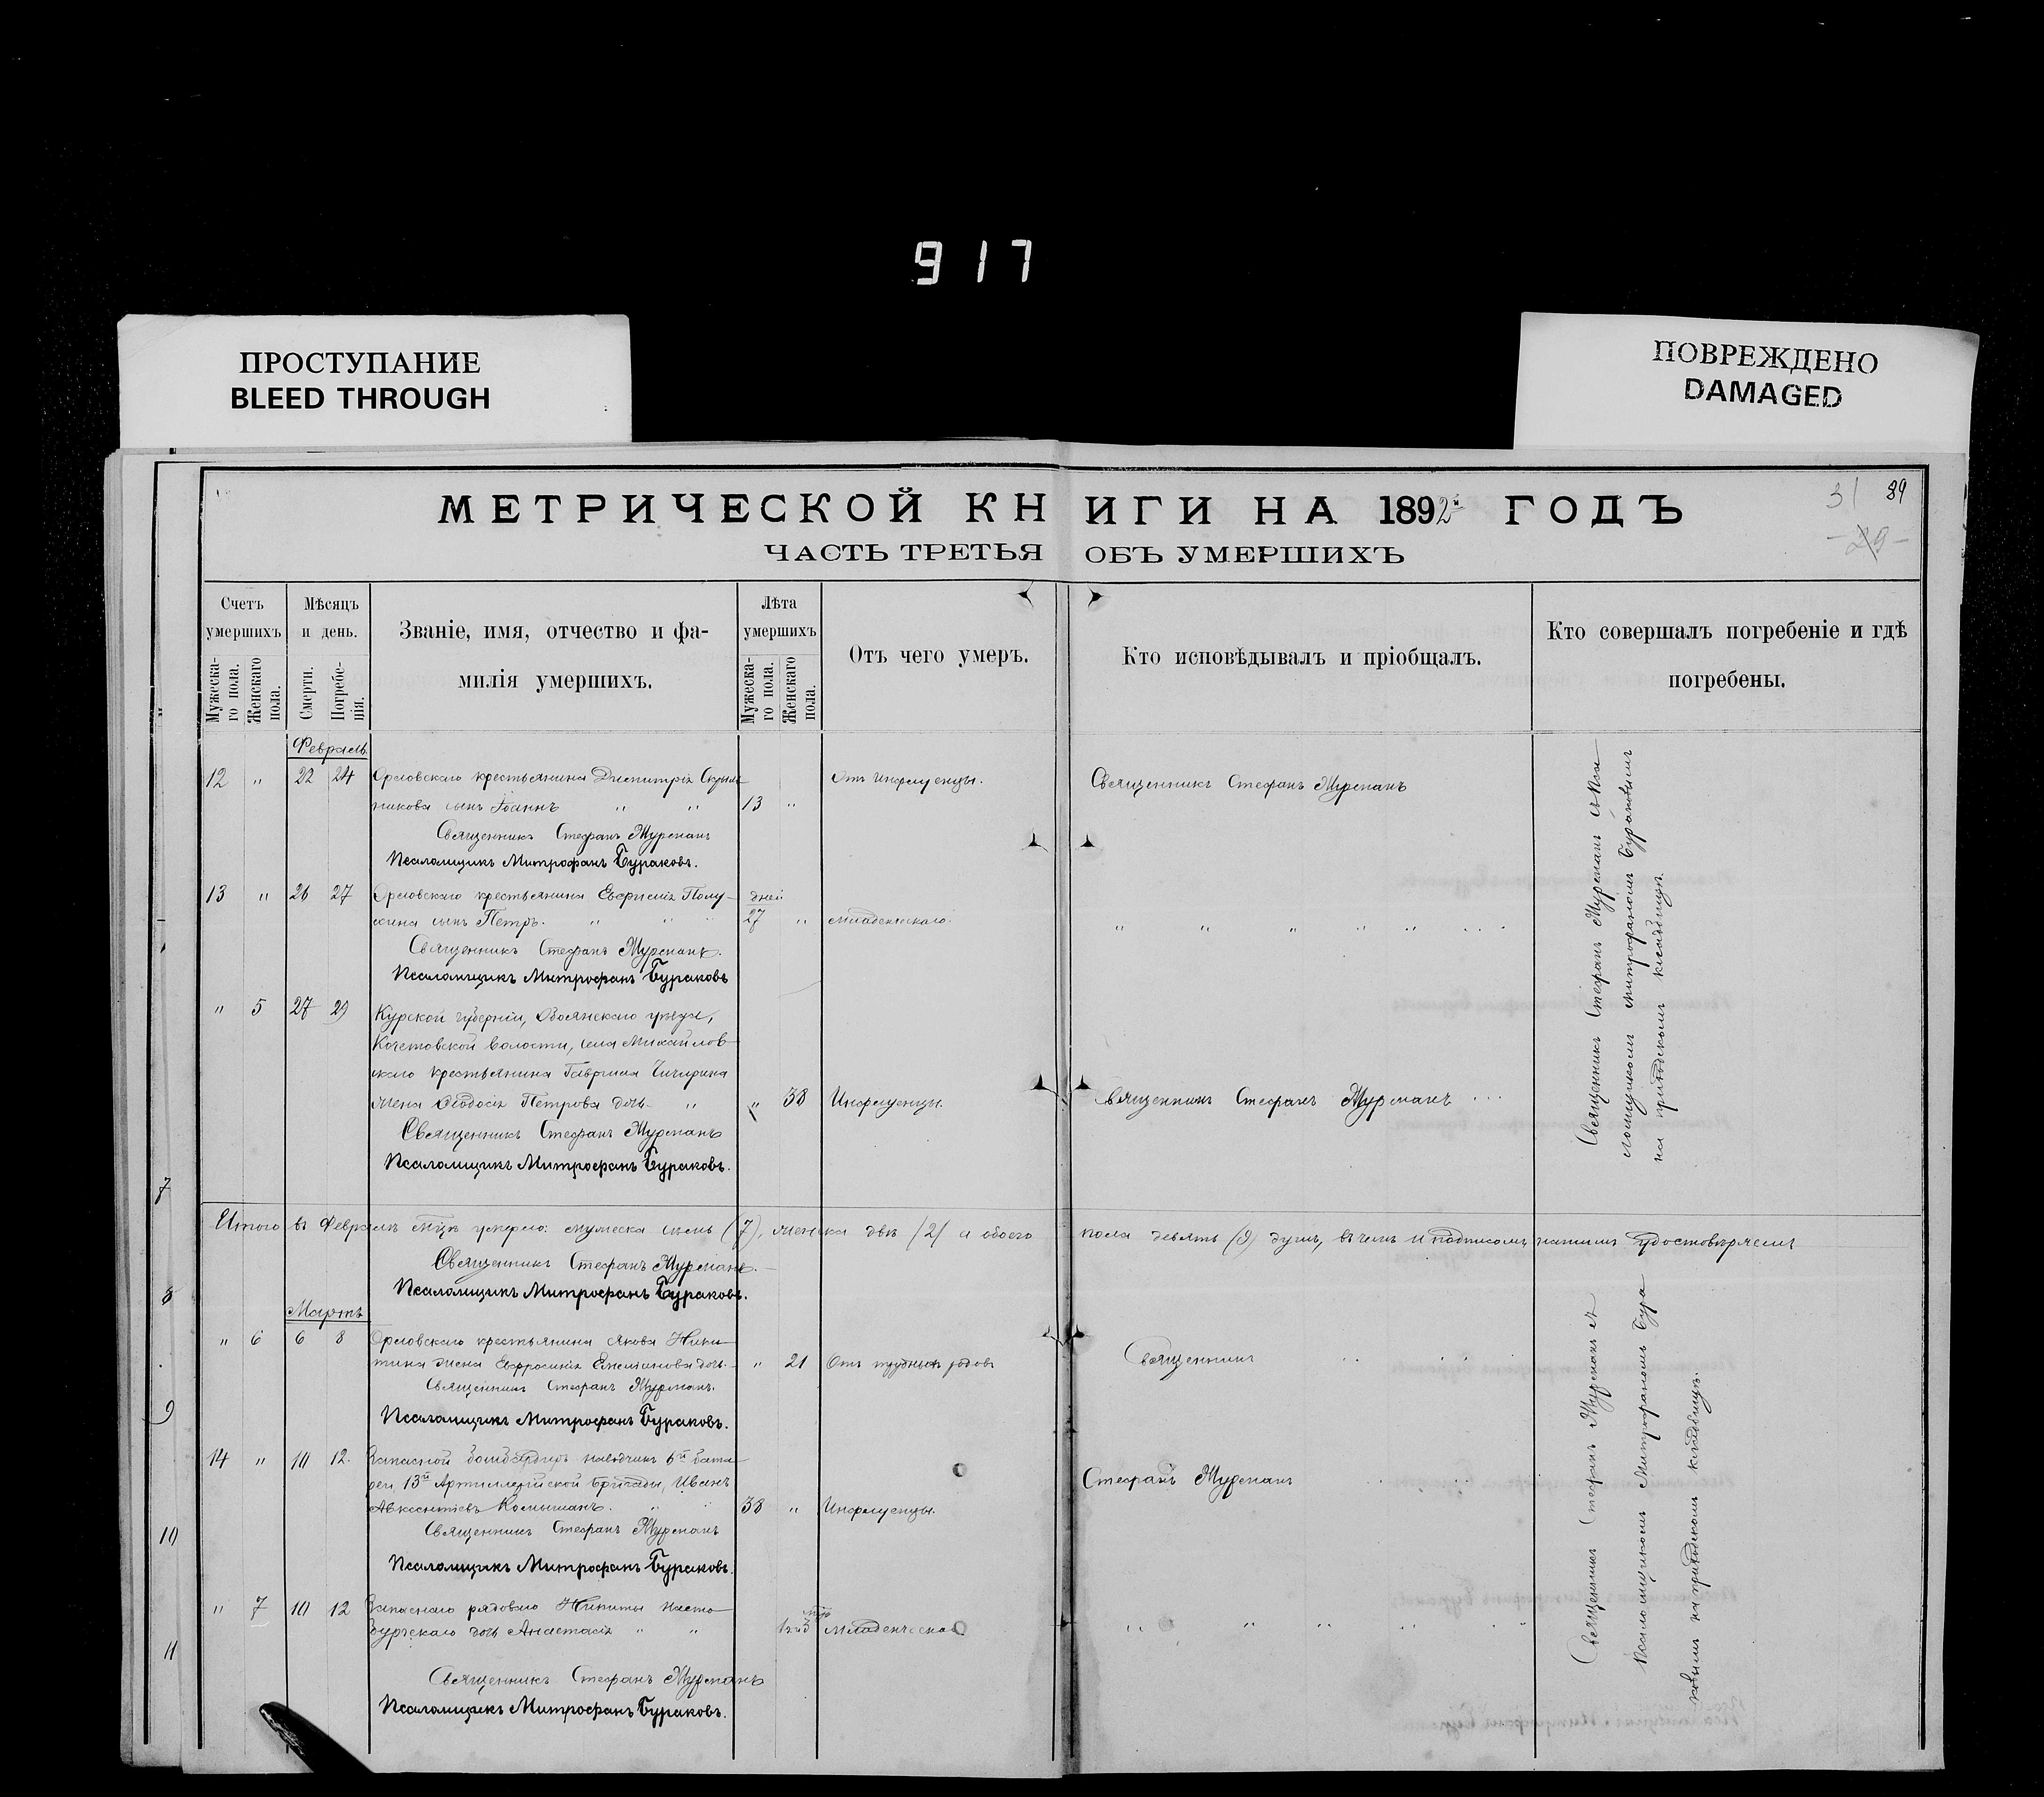 917
ПРОСТУПАНИЕ
BLEED THROUGH
ПОВРЕЖДЕНО
DAMAGED
МЕТРИЧЕСКОЙ КНИГИ НА 1892й ГОДЪ
31 39
-29-
ЧАСТЬ ТРЕТЬЯ ОБЪ УМЕРШИХЪ
Счетъ умершихъ
Мужеска-го пола.
Женскаго пола.
Мѣсяцъ и день.
Смерти.
Погребе-нія.
Званіе, имя, отчество и фа-
милія умершихъ.
Лѣта умершихъ
Мужеска-го пола.
Женскаго пола.
Отъ чего умеръ.
Кто исповѣдывалъ и пріобщалъ.
Кто совершалъ погребеніе и гдѣ
погребены.
Февраль
12 " 22 24 Орловскаго крестьянина Димитрія Отъ Инфлуенцы. Священникъ Стефанъ Мурманъ
никова сынъ Іоаннъ " " 13 "
Священникъ Стефанъ Мурманъ
Псаломщикъ Митрофанъ Бураковъ.
13 " 26 27 Орловскаго крестьянина Евфимія Полу- дней
сынъ Петръ. " " " 27 " младенческаго. " " " " "
Священникъ Стефанъ Мурманъ.
Псаломщикъ Митрофанъ Бураковъ
" 5 27 29 Курской губерніи, Обоянскаго уѣзда,
Кочетовской волости, села Михайлов-
скаго крестьянина Гавріила
жена Ѳеодосія Петрова дочь " " 38 Инфлуенцы. Священникъ Стефанъ Мурманъ
Священникъ Стефанъ Мурманъ
Псаломщикъ Митрофанъ Бураковъ.
Священникъ Стефанъ Мурманъ съ Пса
ломщикомъ Митрофаномъ Бураковымъ
на приходскомъ кладбищѣ.
Итого въ Февралѣ мцѣ умерло: мужеска семь (7), женска двѣ (2) а обоего пола девять (9) душъ, въ чемъ и подписомъ нашимъ удостовѣряемъ
Священникъ Стефанъ Мурманъ.
Псаломщикъ Митрофанъ Бураковъ.
Мартъ
" 6 6 8 Орловскаго крестьянина Якова Ники-
тина жена Евфросинія Емеліанова дочь. " 21 Отъ трудныхъ родовъ Священникъ
Священникъ Стефанъ Мурманъ.
Псаломщикъ Митрофанъ Бураковъ.
14 " 10 12 Запасной бомбардиръ наводчикъ 6й бата-
реи 13й Артиллерійской Бригады, Иванъ Стефанъ Мурманъ
Авксентіевъ Комышанъ. " " 38 " Инфлуенцы.
Священникъ Стефанъ Мурманъ
Псаломщикъ Митрофанъ Бураковъ.
" 7 10 12 Запаснаго рядоваго Никиты
дочь Анастасія " " Младенческаго " " " " "
Священникъ Стефанъ Мурманъ
Псаломщикъ Митрофанъ Бураковъ.
Священникъ Стефанъ Мурманъ съ
Псаломщикомъ Митрофаномъ Бура
ковымъ на приходскомъ кладбищѣ.
7
8
9
10
11